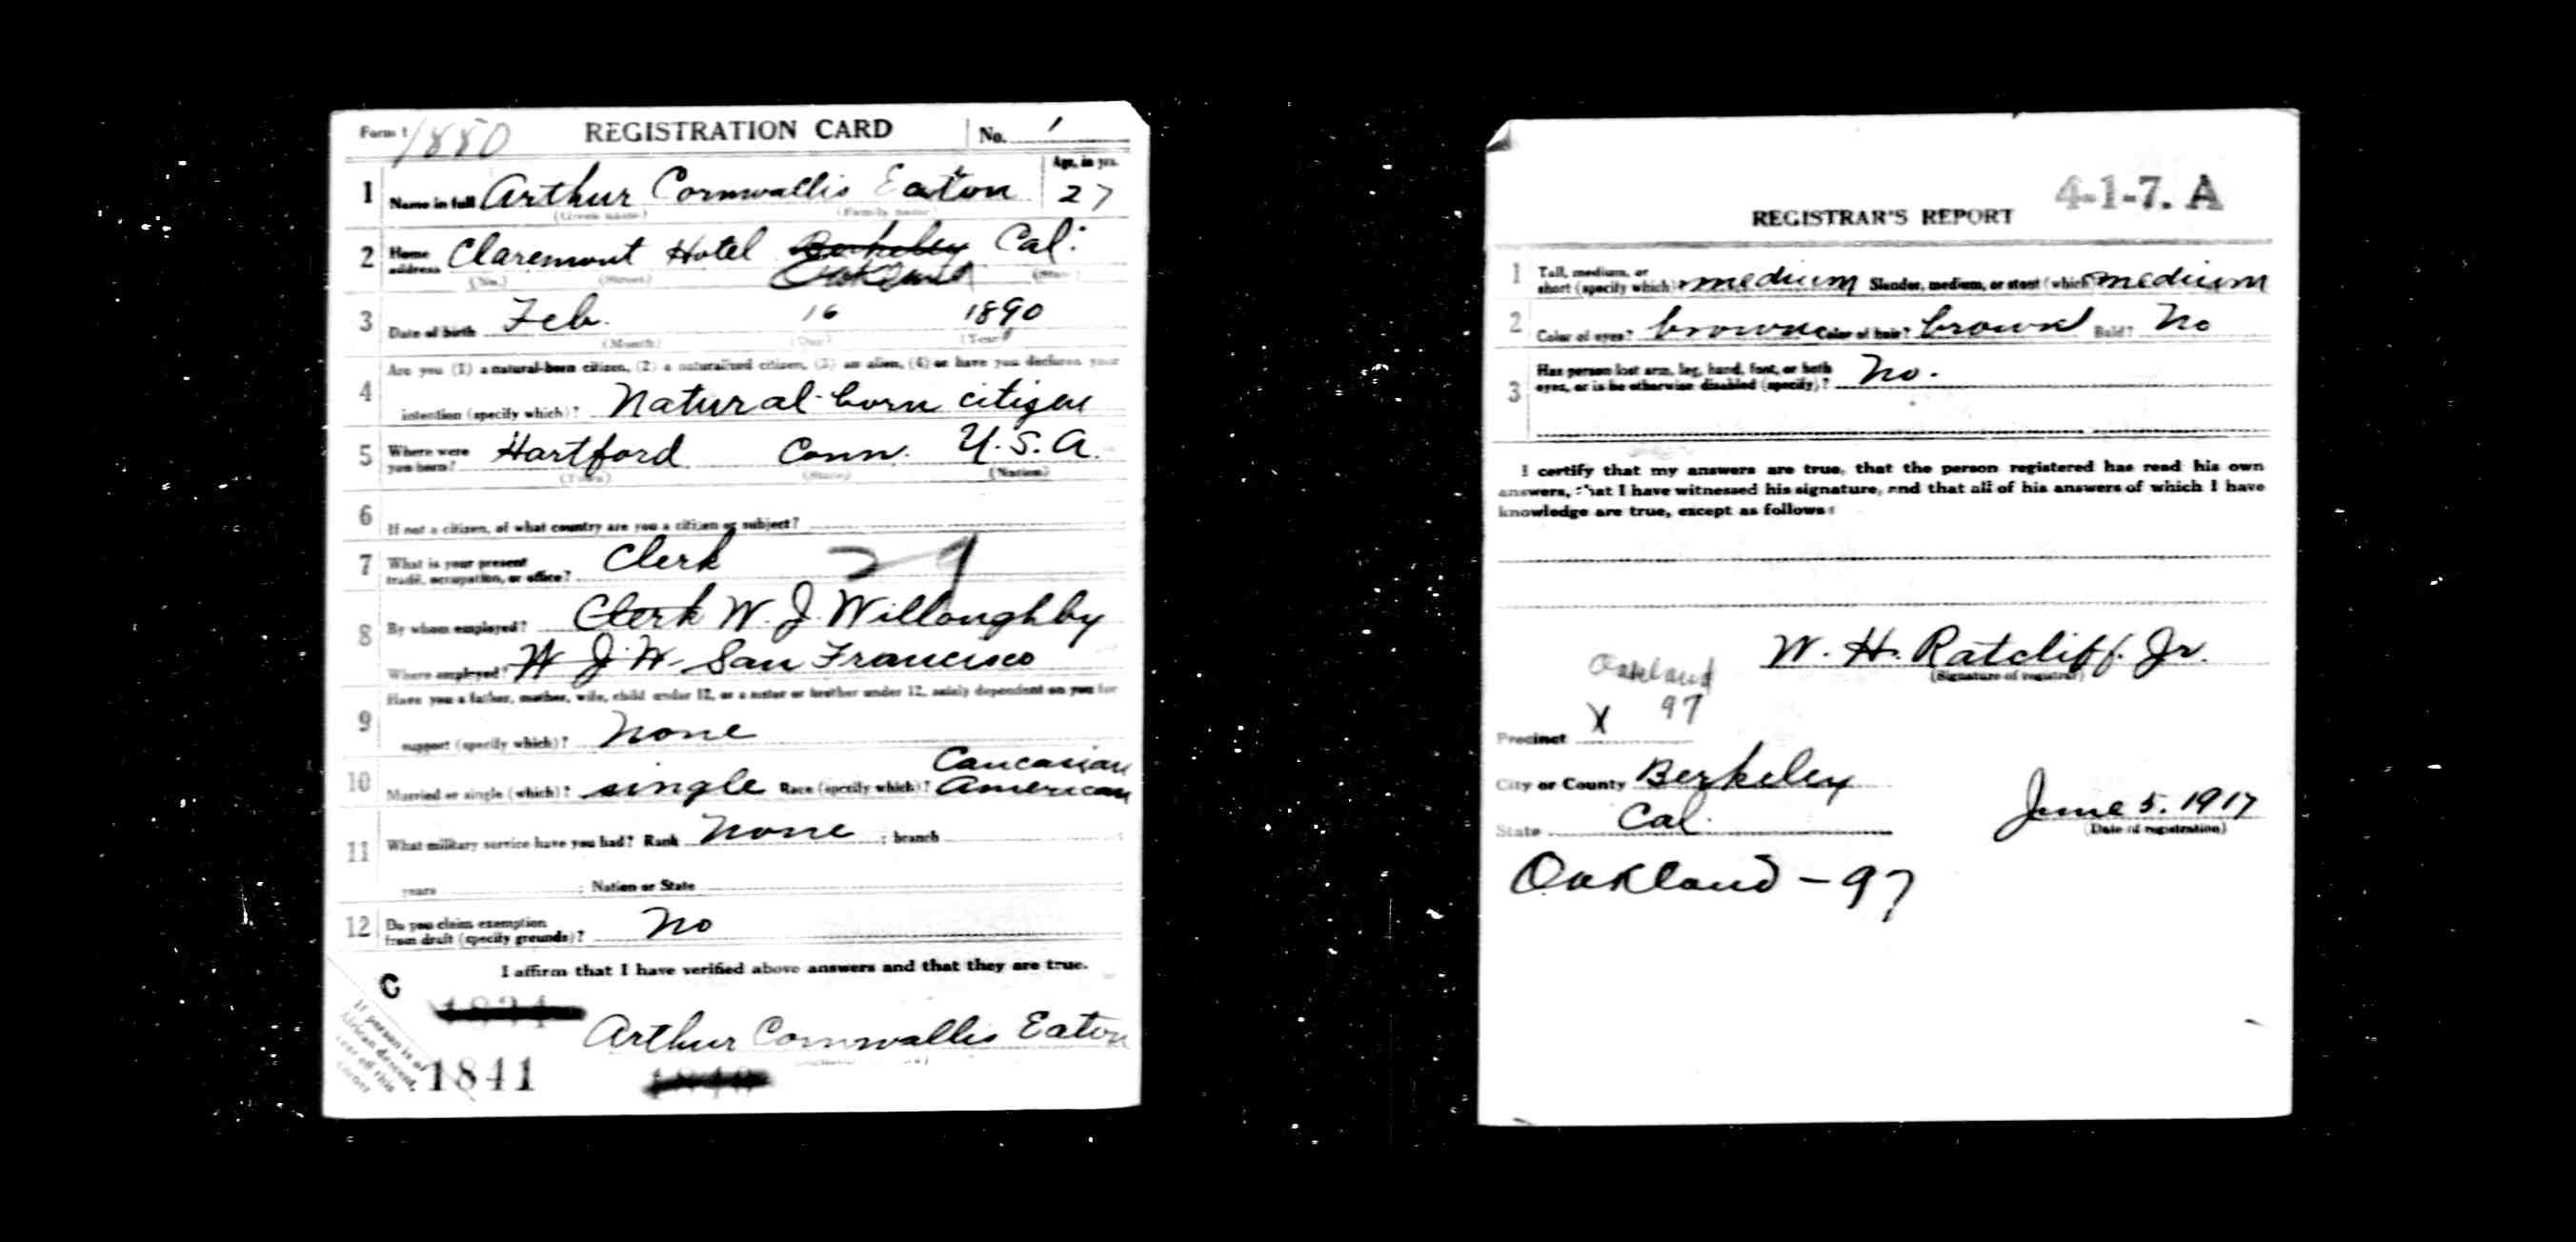 Form 1 1880 REGISTRATION CARD No. 1
1 Name in full Arthur Cornwallis Eaton Age, in yrs. 27
(Given name) (Family name)
2 Home address Claremont Hotel Berkeley Cal.
Oakland
(No.) (Street) (State)
3 Date of birth Feb. 16 1890
(Month) (Day) (Year)
4 Are you (1) a natural-born citizen, (2) a naturalized citizen, (3) an alien, (4) or have you declared your
intention (specify which)? Natural-born citizen
5 Where were you born? Hartford Conn. U.S.A.
(Town) (State) (Nation)
6 If not a citizen, of what country are you a citizen or subject?
7 What is your present trade, occupation, or office? Clerk 29
8 By whom employed? Clerk W. J. Willoughby
Where employed? W J W San Francisco
9 Have you a father, mother, wife, child under 12, or a sister or brother under 12, solely dependent on you for
support (specify which)? None
10 Married or single (which)? single Race (specify which)? Caucasian American
11 What military service have you had? Rank none ; branch
years ; Nation or State
12 Do you claim exemption from draft (specify grounds)? No
I affirm that I have verified above answers and that they are true.
C
If person is of African descent, tear off this corner
Arthur Cornwallis Eaton
1841
4-1-7. A
REGISTRAR'S REPORT
1 Tall, medium, or short (specify which)? medium Slender, medium, or stout (which)? medium
2 Color of eyes? brown Color of hair? brown Bald? No
3 Has person lost arm, leg, hand, foot, or both eyes, or is he otherwise disabled (specify)? No.
I certify that my answers are true, that the person registered has read his own
answers, that I have witnessed his signature, and that all of his answers of which I have
knowledge are true, except as follows:
W. H. Ratcliff. Jr.
(Signature of registrar)
Oakland
Precinct X 97
City or County Berkeley
State Cal. June 5. 1917
(Date of registration)
Oakland - 97